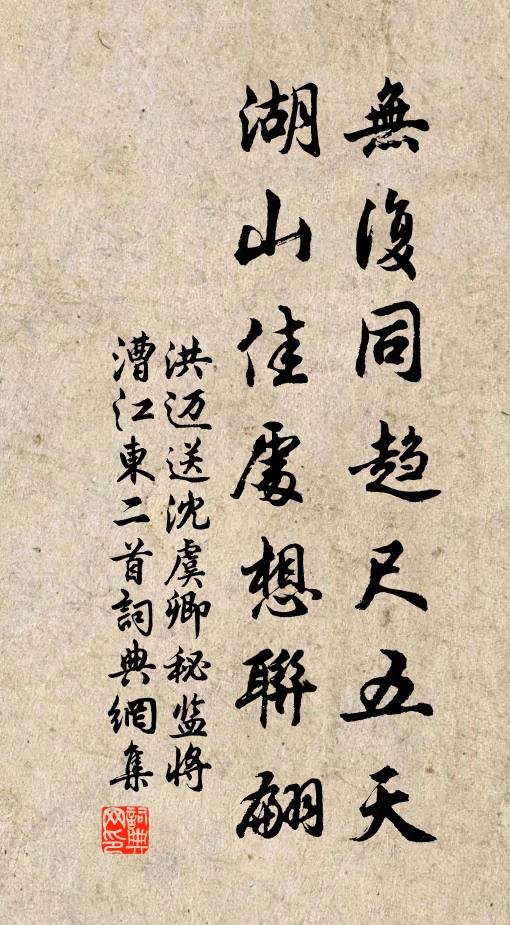 無復同趨尺五天
湖山佳處想聯翩
洪迈送沈虞卿秘监將
漕江東二首詞典網集
詞典
网印